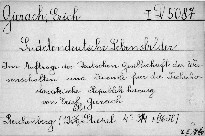 Gierach, Erich I D 5087
Sudetendeutsche Lebensbilder
Im Auftrage der Deutschen Gesellschaft der Wis-
senschaften und Künste für die Tschecho-
slowakische Republik herausg.
von Erich Gierach
Reichenberg